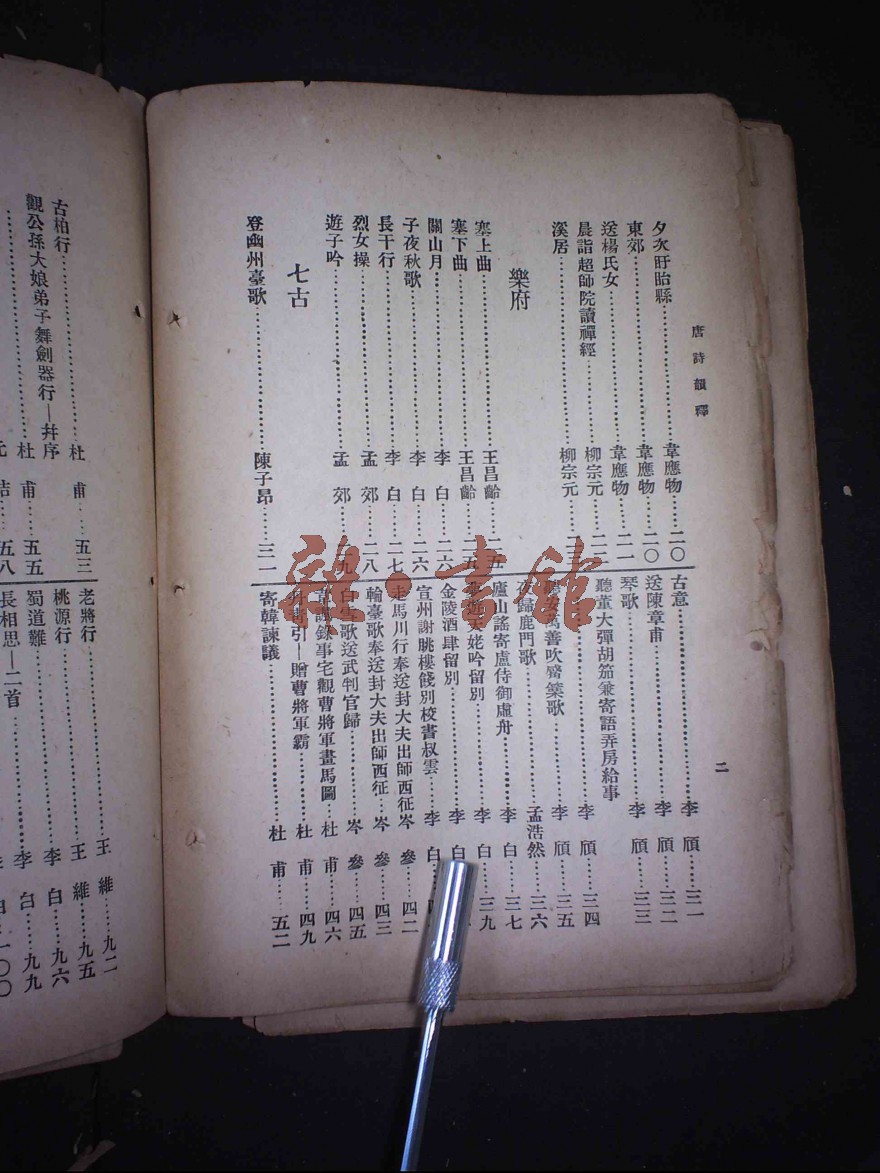 唐詩韻釋
二
夕次盱眙縣……韋應物……二〇
東郊……韋應物……二〇
送楊氏女……韋應物……二一
晨詣超師院讀禪經……柳宗元……二二
溪居……柳宗元……二
樂府
塞上曲……王昌齡……二五
塞下曲……王昌齡……二五
關山月……李白……二六
子夜秋歌……李白……二六
長干行……李白……二七
烈女操……孟郊……二八
遊子吟……孟郊……二九
七古
登幽州臺歌……陳子昂……三一
古意……李頎……三一
送陳章甫……李頎……三二
琴歌……李頎……三三
聽董大彈胡笳兼寄語弄房給事
……李頎……三四
聽安萬善吹觱篥歌……李頎……三五
夜歸鹿門歌……孟浩然……三六
廬山謠寄盧侍御虛舟……李白……三七
遊天姥吟留別……李白……三九
金陵酒肆留別……李白
宣州謝朓樓餞別校書叔雲……李白
走馬川行奉送封大夫出師西征……岑參……四二
輪臺歌奉送封大夫出師西征……岑參……四三
白雪歌送武判官歸……岑參……四五
錄事宅觀曹將軍畫馬圖……杜甫……四六
丹青引—贈曹將軍霸……杜甫……四九
寄韓諫議……杜甫……五二
古柏行……杜甫……五三
觀公孫大娘弟子舞劍器行—幷序
……杜甫……五五
……元結……五八
老將行……王維……九二
桃源行……王維……九五
蜀道難……李白……九六
長相思—二首……李白……九九
一〇〇
雜·書館